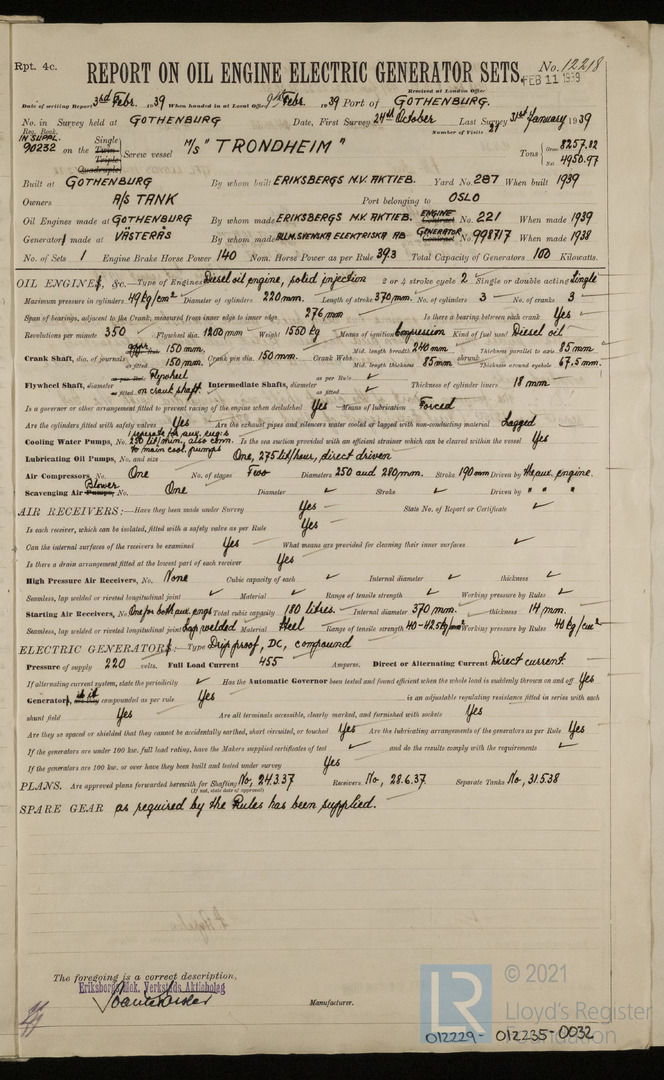 Rpt. 4c.
REPORT ON OIL ENGINE ELECTRIC GENERATOR SETS.
No. 12218
FEB 11 1939
Received at London Office
Date of writing Report 3rd Febr. 1939 When handed in at Local Office 9th Febr. 1939 Port of GOTHENBURG.
No. in Survey held at GOTHENBURG Date, First Survey 24th October Last Survey 31st January 1939
Reg. Book. Number of Visits 21
IN SUPPL. 90232 on the Single Twin Triple Quadruple Screw vessel M/s "TRONDHEIM" Tons Gross 8257.82 Net 4950.97
Built at GOTHENBURG By whom built ERIKSBERGS M.V. AKTIEB. Yard No. 287 When built 1939
Owners A/S TANK Port belonging to OSLO
Oil Engines made at GOTHENBURG By whom made ERIKSBERGS M.V. AKTIEB. ENGINE Contract No. 221 When made 1939
Generator made at VÄSTERÅS By whom made ALLM. SVENSKA ELEKTRISKA AB GENERATOR Contract No. 998717 When made 1938
No. of Sets 1 Engine Brake Horse Power 140 Nom. Horse Power as per Rule 39.3 Total Capacity of Generators 100 Kilowatts.
OIL ENGINES, &c.—Type of Engines Diesel oil engine, solid injection 2 or 4 stroke cycle 2 Single or double acting Single
Maximum pressure in cylinders 49 kg/cm² Diameter of cylinders 220 mm. Length of stroke 370 mm. No. of cylinders 3 No. of cranks 3
Span of bearings, adjacent to the Crank, measured from inner edge to inner edge 276 mm Is there a bearing between each crank Yes
Revolutions per minute 350 Flywheel dia. 1200 mm Weight 1550 kg Means of ignition Compression Kind of fuel used Diesel oil
Crank Shaft, dia. of journals appr. 150 mm. as fitted 150 mm. Crank pin dia. 150 mm. Crank Webs Mid. length breadth 240 mm Mid. length thickness 85 mm shrunk Thickness parallel to axis 85 mm Thickness around eyehole 67.5 mm.
Flywheel Shaft, diameter as per Rule Flywheel as fitted on crank shaft. Intermediate Shafts, diameter as per Rule ✓ as fitted ✓ Thickness of cylinder liners 18 mm
Is a governor or other arrangement fitted to prevent racing of the engine when declutched Yes Means of lubrication Forced
Are the cylinders fitted with safety valves Yes Are the exhaust pipes and silencers water cooled or lagged with non-conducting material Lagged
Cooling Water Pumps, No. 1 separate for aux. eng:s 250 lit/min, also conn. to main cool. pumps Is the sea suction provided with an efficient strainer which can be cleared within the vessel Yes
Lubricating Oil Pumps, No. and size One, 275 lit/hour, direct driven
Air Compressors, No. One No. of stages Two Diameters 250 and 280 mm. Stroke 190 mm Driven by the aux. engine.
Scavenging Air Pumps, Blower No. One Diameter ✓ Stroke ✓ Driven by " " "
AIR RECEIVERS:—Have they been made under Survey Yes State No. of Report or Certificate ✓
Is each receiver, which can be isolated, fitted with a safety valve as per Rule Yes
Can the internal surfaces of the receivers be examined Yes What means are provided for cleaning their inner surfaces ✓
Is there a drain arrangement fitted at the lowest part of each receiver Yes
High Pressure Air Receivers, No. None Cubic capacity of each ✓ Internal diameter ✓ thickness ✓
Seamless, lap welded or riveted longitudinal joint ✓ Material ✓ Range of tensile strength ✓ Working pressure by Rules ✓
Starting Air Receivers, No. One for both aux. engs Total cubic capacity 180 litres. Internal diameter 370 mm. thickness 14 mm.
Seamless, lap welded or riveted longitudinal joint Lap welded Material Steel Range of tensile strength 40-42.5 kg/mm² Working pressure by Rules 40 kg/cm²
ELECTRIC GENERATORS:—Type Drip proof, DC, compound
Pressure of supply 220 volts. Full Load Current 455 Amperes. Direct or Alternating Current Direct current.
If alternating current system, state the periodicity ✓ Has the Automatic Governor been tested and found efficient when the whole load is suddenly thrown on and off Yes
Generators, is it are they compounded as per rule Yes is an adjustable regulating resistance fitted in series with each
shunt field Yes Are all terminals accessible, clearly marked, and furnished with sockets Yes
Are they so spaced or shielded that they cannot be accidentally earthed, short circuited, or touched Yes Are the lubricating arrangements of the generators as per Rule Yes
If the generators are under 100 kw. full load rating, have the Makers supplied certificates of test ✓ and do the results comply with the requirements ✓
If the generators are 100 kw. or over have they been built and tested under survey Yes
PLANS. Are approved plans forwarded herewith for Shafting No, 24.3.37 Receivers No, 28.6.37. Separate Tanks No, 31.5.38
(If not, state date of approval)
SPARE GEAR as required by the Rules has been supplied.
The foregoing is a correct description,
Eriksbergs Mek. Verkstads Aktiebolag
Manufacturer.
LR © 2021
Lloyd's Register
Foundation
012229-012235-0032